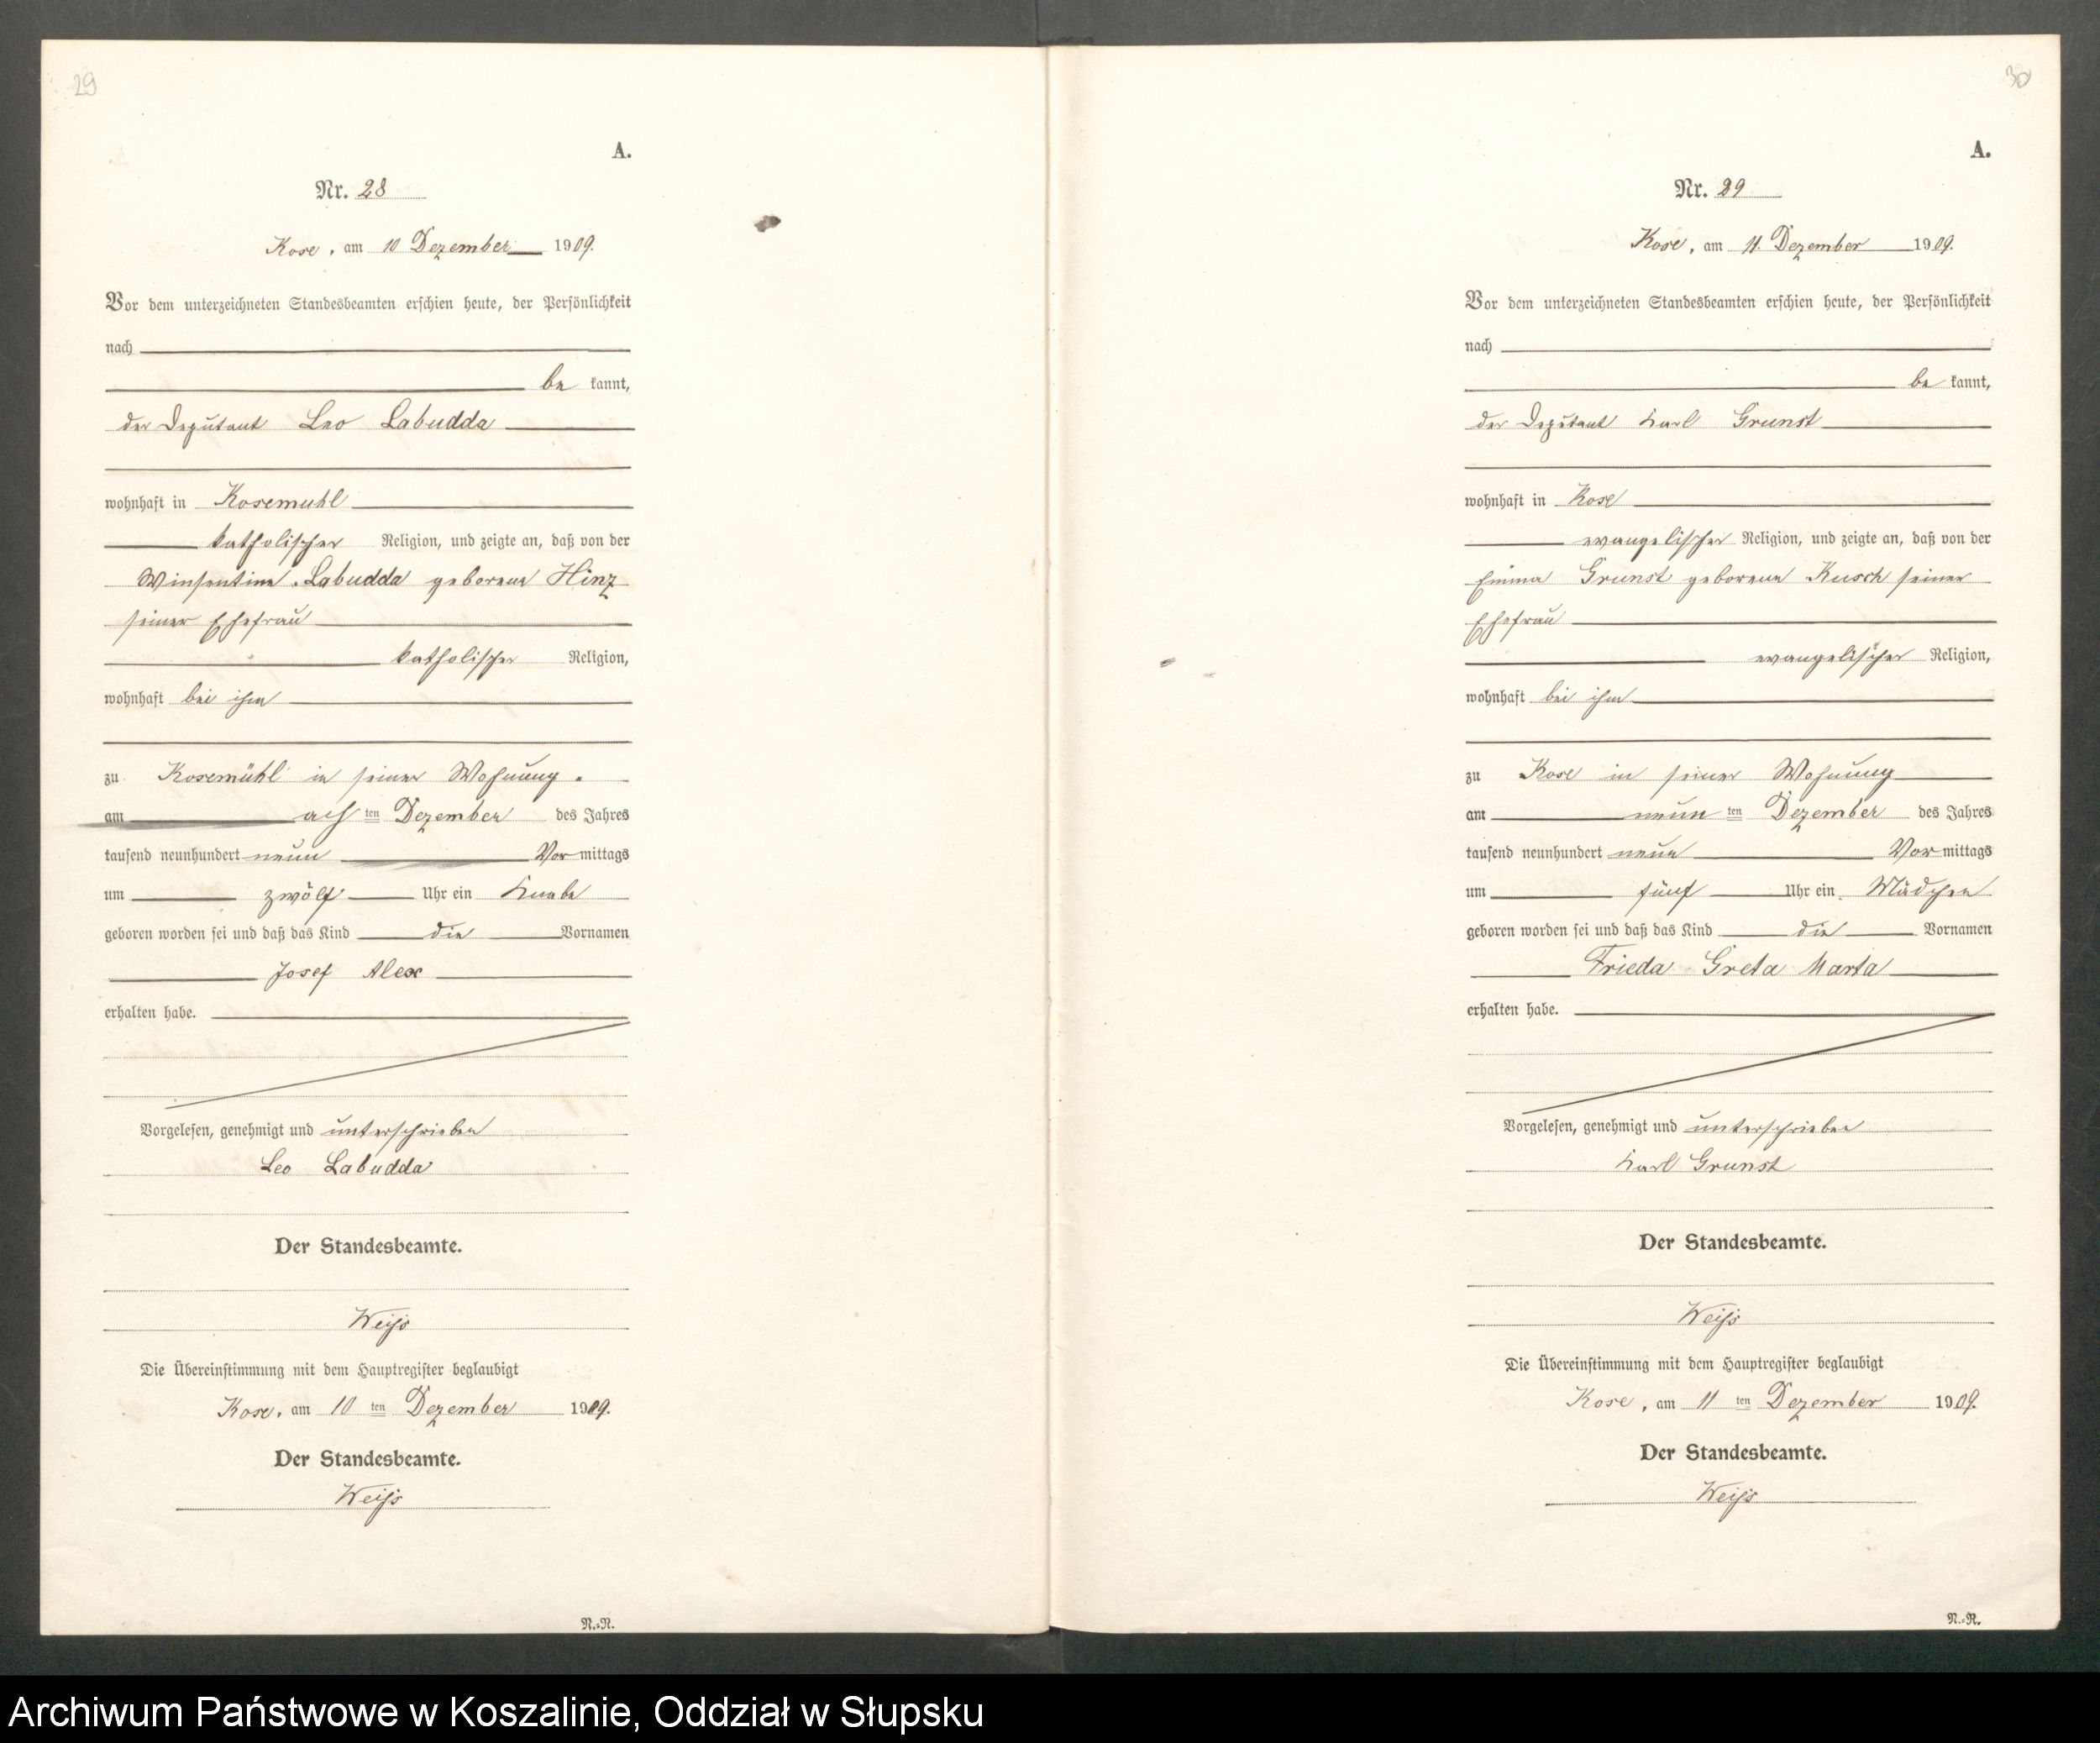 29
A.
Nr. 28
Kose, am 10 Dezember 1909.
Vor dem unterzeichneten Standesbeamten erschien heute, der Persönlichkeit
nach
be kannt,
der Deputant Leo Labudda
wohnhaft in Kosemuhl
katholischer Religion, und zeigte an, daß von der
Winsentine Labudda geborene Hinz
seiner Ehefrau
katholischer Religion,
wohnhaft bei ihm
zu Kosemühl in seiner Wohnung.
am ach ten Dezember des Jahres
tausend neunhundert neun Vor mittags
um zwölf Uhr ein Knabe
geboren worden sei und daß das Kind die Vornamen
Josef Alex
erhalten habe.
Vorgelesen, genehmigt und unterschrieben
Leo Labudda
Der Standesbeamte.
Weiſs
Die Übereinstimmung mit dem Hauptregister beglaubigt
Kose, am 10 ten Dezember 1909.
Der Standesbeamte.
Weiſs
N.=R.
30
A.
Nr. 29
Kose, am 11. Dezember 1909.
Vor dem unterzeichneten Standesbeamten erschien heute, der Persönlichkeit
nach
be kannt,
der Deputant Karl Grunst
wohnhaft in Kose
evangelischer Religion, und zeigte an, daß von der
Emma Grunst geborene Kusch seiner
Ehefrau
evangelischer Religion,
wohnhaft bei ihm
zu Kose in seiner Wohnung
am neun ten Dezember des Jahres
tausend neunhundert neun Vor mittags
um fünf Uhr ein Mädchen
geboren worden sei und daß das Kind die Vornamen
Frieda Greta Marta
erhalten habe.
Vorgelesen, genehmigt und unterschrieben
Karl Grunst
Der Standesbeamte.
Weiſs
Die Übereinstimmung mit dem Hauptregister beglaubigt
Kose, am 11 ten Dezember 1909.
Der Standesbeamte.
Weiſs
N.=R.
Archiwum Państwowe w Koszalinie, Oddział w Słupsku